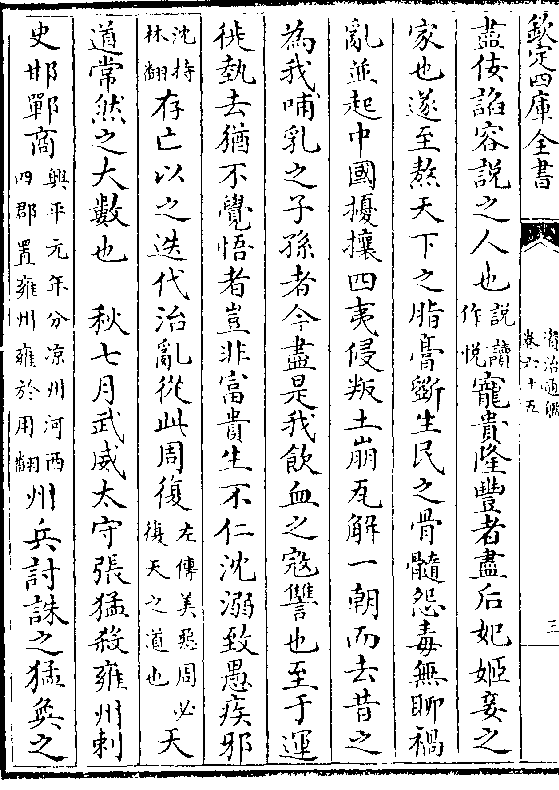 欽定四庫全書
資治通鑑
卷六十五
三
盡佞諂容說之人也說讀作悅寵貴隆豐者盡后妃姬妾之
家也遂至熬天下之脂膏斵生民之骨髓怨毒無聊禍
亂並起中國擾攘四夷侵叛土崩瓦解一朝而去昔之
為我哺乳之子孫者今盡是我飲血之寇讐也至于運
徙勢去猶不覺悟者豈非富貴生不仁沈溺致愚疾邪
沈持林翻存亡以之迭代治亂從此周復左傳美惡周必復天之道也天
道常然之大數也　秋七月武威太守張猛殺雍州刺
史邯鄲商興平元年分涼州河西四郡置雍州雍於用翻州兵討誅之猛奐之